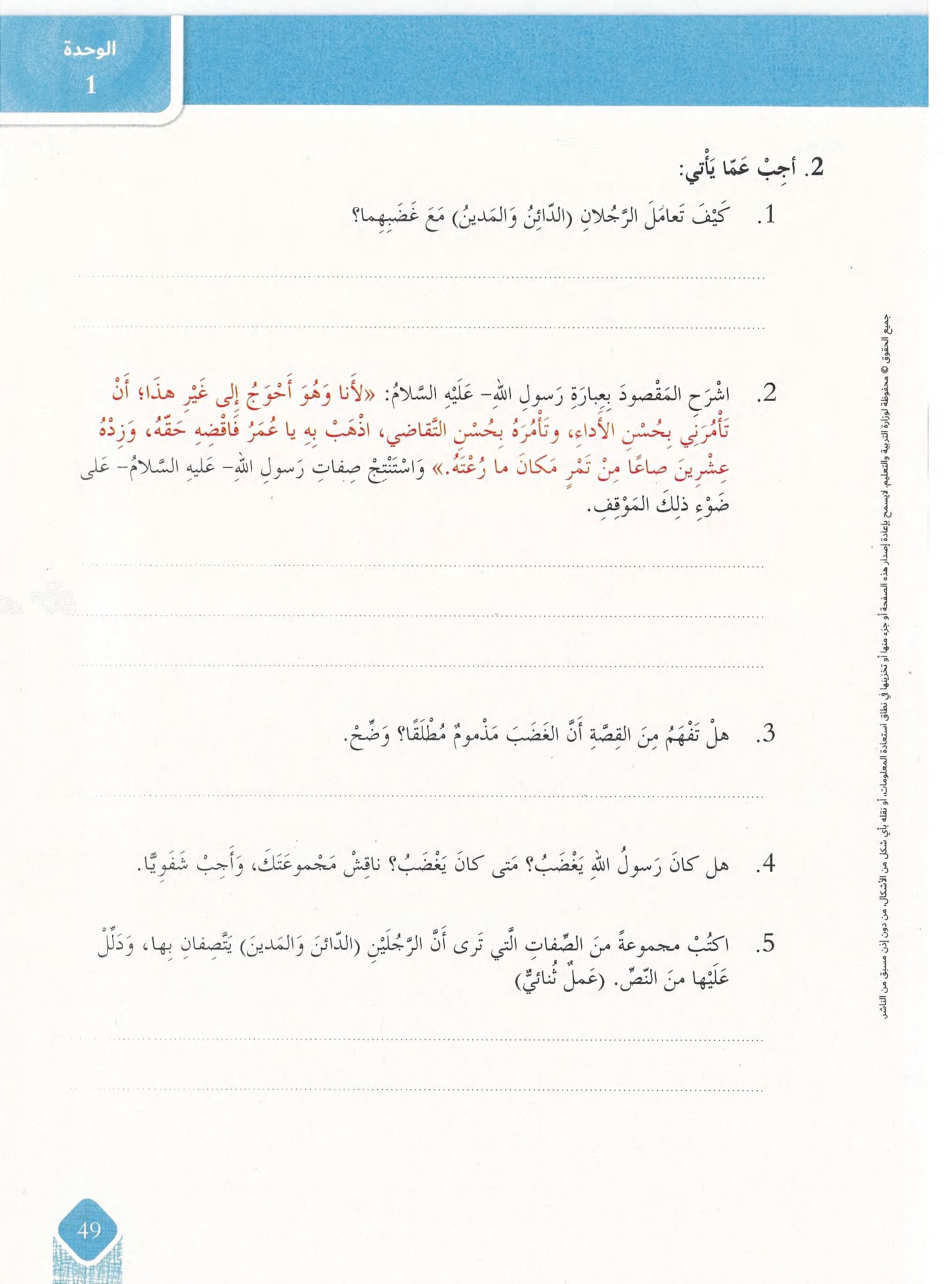 الوحدة
1
2. أجِبْ عَمّا يَأْتي:
1. كَيْفَ تَعامَلَ الرَّجُلانِ (الدّائِنُ وَالمَدينُ) مَعَ غَضَبِهِما؟
2. اشْرَحِ المَقْصودَ بِعِبارَةِ رَسولِ اللهِ- عَلَيْهِ السَّلامُ: «لأَنا وَهُوَ أَحْوَجُ إلى غَيْرِ هذَا؛ أَنْ
تَأْمُرَنِي بِحُسْنِ الأَداءِ، وتَأْمُرَهُ بِحُسْنِ التَّقاضي، اذْهَبْ بِهِ يا عُمَرُ فَاقْضِهِ حَقّهُ، وَزِدْهُ
عِشْرِينَ صاعًا مِنْ تَمْرٍ مَكانَ ما رُعْتَهُ.» وَاسْتَنْتِجْ صِفاتِ رَسولِ اللهِ- عَليهِ السَّلامُ- عَلى
ضَوْءِ ذلِكَ المَوْقِفِ.
3. هلْ تَفْهَمُ مِنَ القِصَّةِ أَنَّ الغَضَبَ مَذْمومٌ مُطْلَقًا؟ وَضِّحْ.
4. هل كانَ رَسولُ اللهِ يَغْضَبُ؟ مَتى كانَ يَغْضَبُ؟ ناقِشْ مَجْموعَتَكَ، وَأَجِبْ شَفَوِيًّا.
5. اكتُبْ مجموعةً منَ الصِّفاتِ الَّتي تَرى أَنَّ الرَّجُلَيْنِ (الدّائنَ وَالمَدينَ) يَتَّصِفانِ بِها، وَدَلِّلْ
عَلَيْها منَ النّصِّ. (عَملٌ ثُنائيٌّ)
جميع الحقوق © محفوظة لوزارة التربية والتعليم. لايسمح بإعادة إصدار هذه الصفحة أو جزء منها أو تخزينها في نطاق استعادة المعلومات، أو نقله بأي شكل من الأشكال، من دون إذن مسبق من الناشر.
49